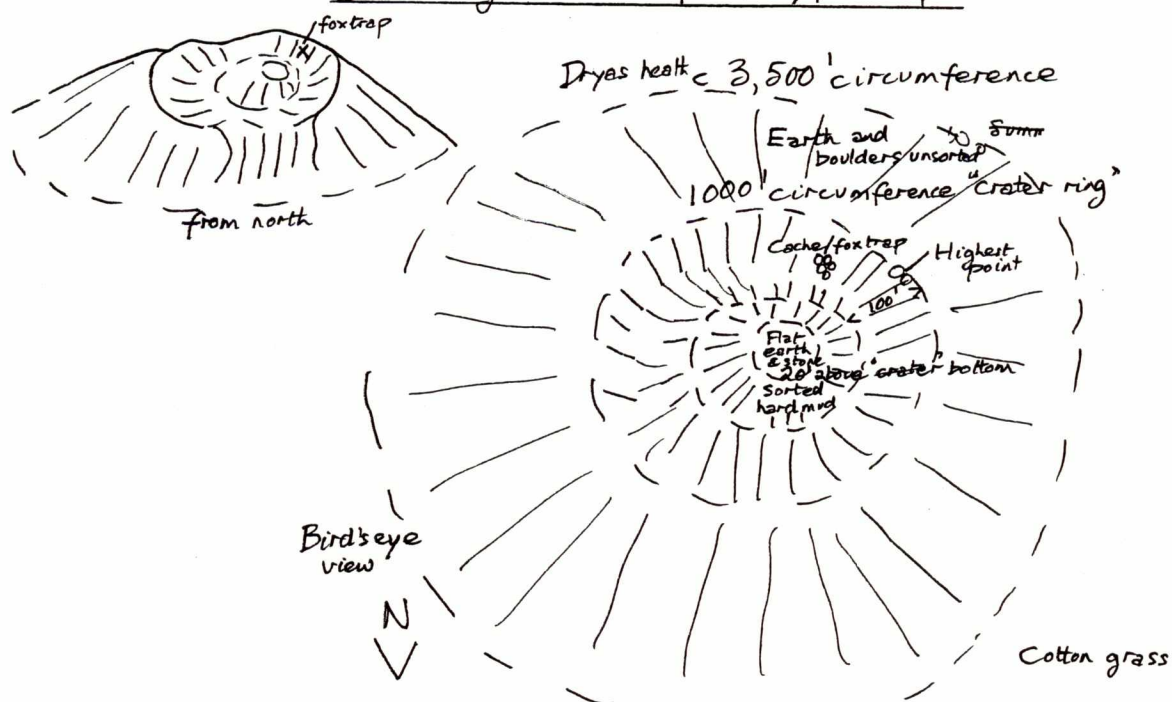 foxtrap
from north
Dryas heath c 3,500' circumference
Earth and
boulders unsorted
1000' circumference "Crater ring"
Cache/foxtrap
Highest
point
100'
Flat
earth
& stone
20' above "crater" bottom
Sorted
hard mud
Bird's eye
view
N
Cotton grass